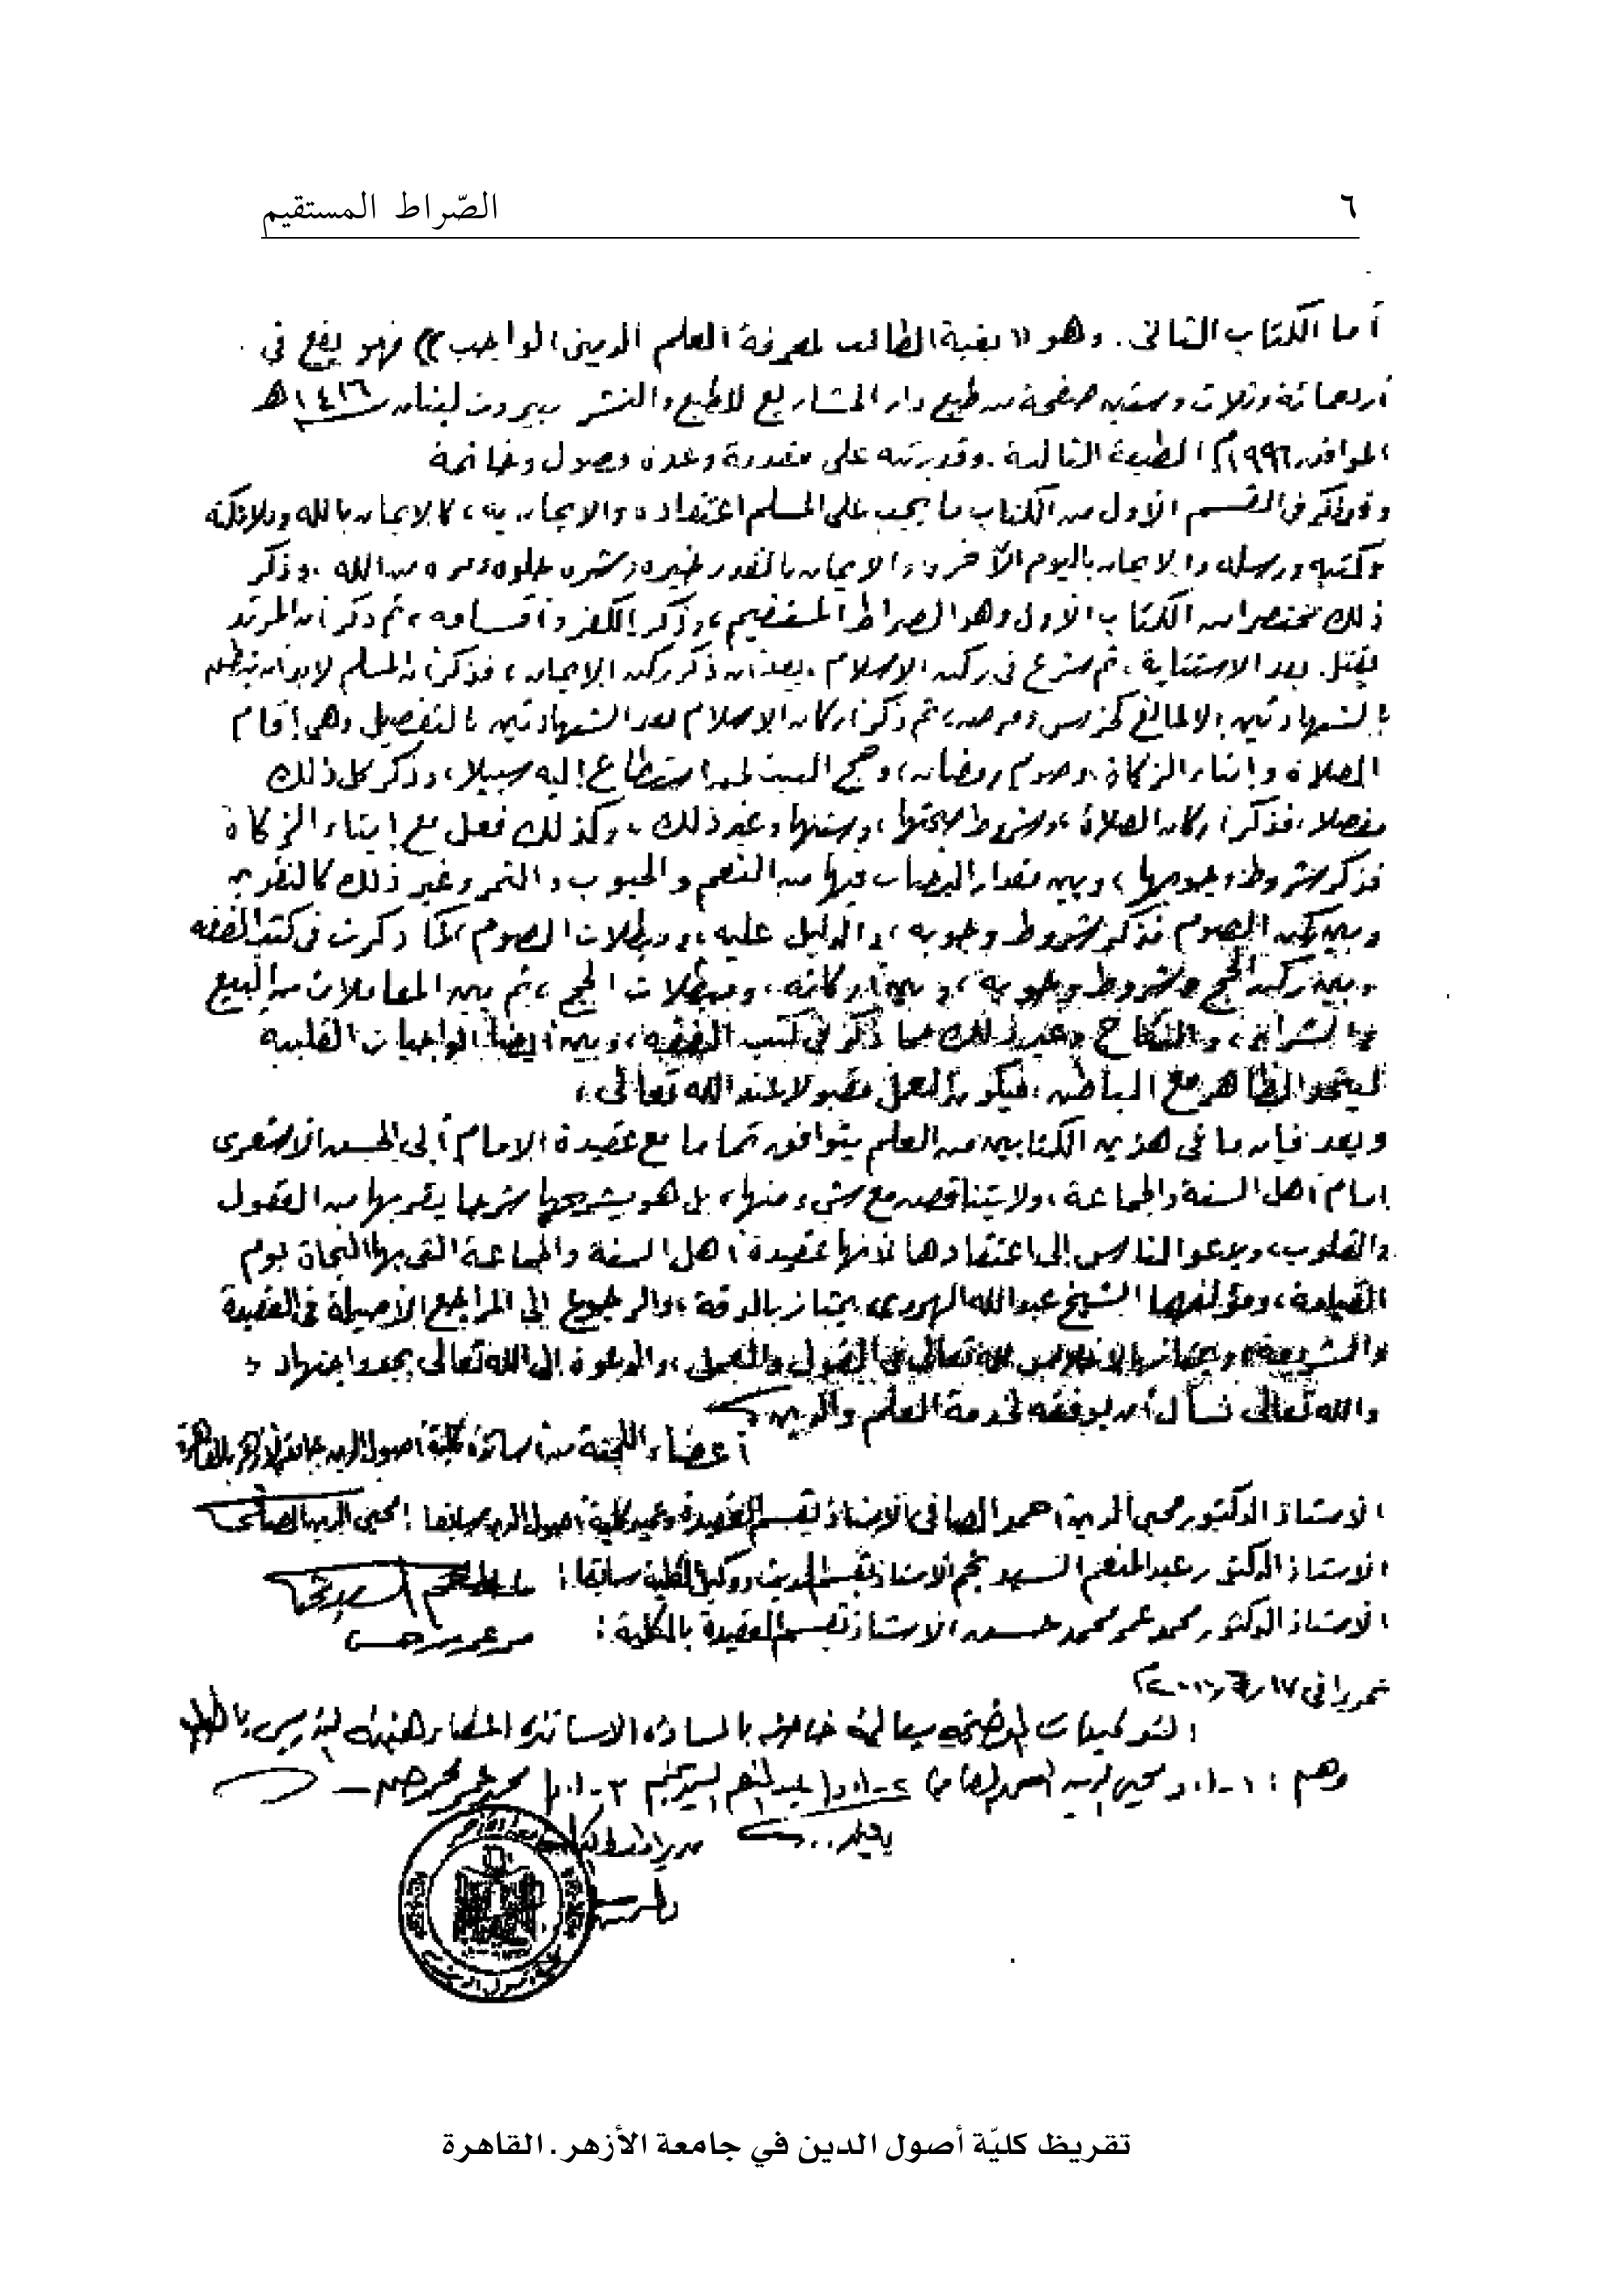 ٦ الصّراط المستقيم
أما الكتاب الثانى. وهو «بغية الطالب لمعرفة العلم الدينى الواجب» فهو يقع فى
أربعمائة وثلاث وستين صفحة من طبع دار المشاريع للطبع والنشر بيروت لبنان ١٤١٦هـ
الموافق ١٩٩٦م الطبعة الثالثة. وقد رتبه على مقدمة وعدة فصول وخاتمة
وقد ذكر فى القسم الأول من الكتاب ما يجب على المسلم اعتقاده والايمان به، كالايمان بالله وملائكته
وكتبه ورسله والايمان باليوم الآخر والايمان بالقدر خيره وشره حلوه ومره من الله. وذكر
ذلك مختصرا من الكتاب الأول وهو الصراط المستقيم، وذكر الكفر وأقسامه، ثم ذكر أن المرتد
يقتل بعد الاستتابة، ثم شرع فى ركن الإسلام بعد أن ذكر ركن الايمان، فذكر أن المسلم لابد أن ينطق
بالشهادتين الا لمانع كخرس ومرض، ثم ذكر أركان الاسلام بعد الشهادتين بالتفصيل وهى إقام
الصلاة وإيتاء الزكاة وصوم رمضان، وحج البيت لمن استطاع إليه سبيلا، وذكر كل ذلك
مفصلا، فذكر أركان الصلاة، وشروط صحتها، وسننها وغير ذلك، وكذلك فعل مع إيتاء الزكاة
فذكر شروط وجوبها، وبين مقدار النصاب فيها من النعم والحبوب والتمر وغير ذلك كالنقدين
وبين ركن الصوم فذكر شروط وجوبه، والدليل عليه، ومبطلات الصوم كما ذكرت فى كتب الفقه
وبين ركن الحج وشروط وجوبه، وبين أركانه، ومبطلات الحج، ثم بين المعاملات من البيع
والشراء، والنكاح وغير ذلك مما ذكر فى كتب الفقه، وبين أيضا الواجبات القلبية
ليتحد الظاهر مع الباطن، فيكون العمل مقبولا عند الله تعالى،
وبعد فإن ما فى هذين الكتابين من العلم يتوافق تماما مع عقيدة الامام أبى الحسن الاشعرى
إمام أهل السنة والجماعة، ولا يتناقض مع شىء منها، بل هو يشرحها شرحا يقربها من العقول
والقلوب، ويدعو الناس إلى اعتقادها لأنها عقيدة أهل السنة والجماعة التى بها النجاة يوم
القيامة، ومؤلفها الشيخ عبد الله الهررى يمتاز بالدقة، والرجوع إلى المراجع الأصيلة فى العقيدة
والشريعة، ويمتاز بالإخلاص لله تعالى فى القول والعمل، والدعوة إلى الله تعالى بجد واجتهاد،
والله تعالى نسأل أن يوفقه لخدمة العلم والدين.
أعضاء اللجنة من أساتذة كلية أصول الدين جامعة الأزهر بالقاهرة
الاستاذ الدكتور محيى الدين أحمد الصافى الاستاذ بقسم العقيدة وعميد كلية أصول الدين سابقا: محيى الدين الصافى
الاستاذ الدكتور عبد المنعم السيد نجم الاستاذ بقسم الحديث ووكيل الكلية سابقا:
الاستاذ الدكتور محمد عمر محمد حسن الاستاذ بقسم العقيدة بالكلية:
تحريرا فى ١٧
التوكيعات الموضحة بعاليه خاصة بالسادة الاساتذة اعضاء هيئة التدريس بالكلية
وهم: ١- أ.د محيى الدين أحمد الصافى ٢- أ.د عبد المنعم السيد نجم ٣- أ.د محمد عمر محمد حسن
تقريظ كليّة أصول الدين في جامعة الأزهر. القاهرة